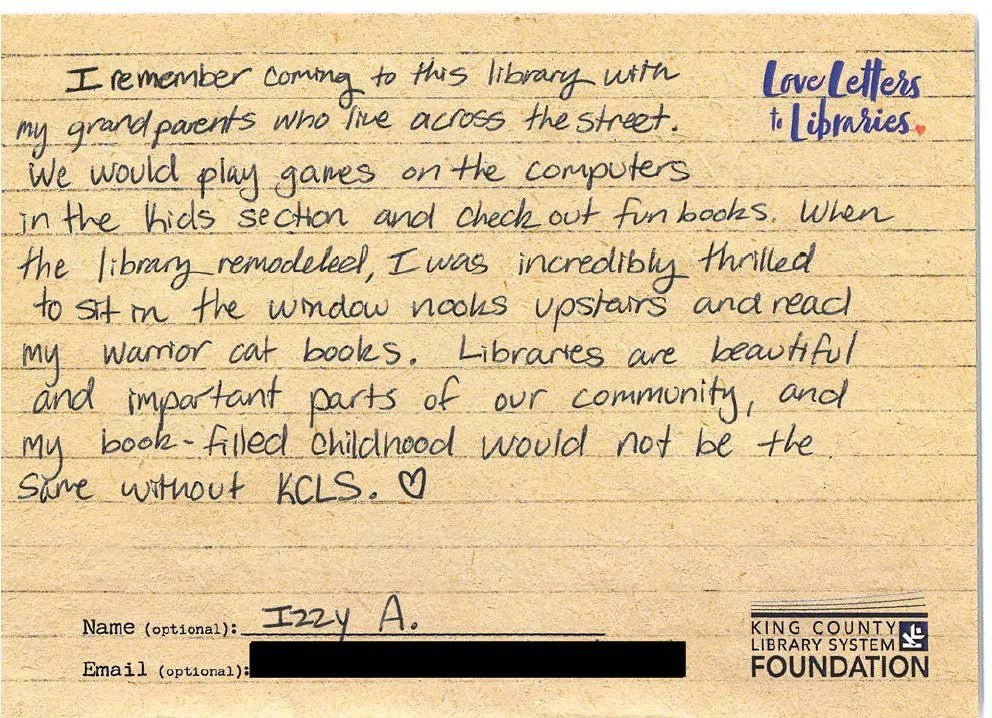 I remember coming to this library with
my grandparents who live across the street.
We would play games on the computers
in the kids section and check out fun books. When
the library remodeled, I was incredibly thrilled
to sit in the window nooks upstairs and read
my warrior cat books. Libraries are beautiful
and important parts of our community, and
my book-filled childhood would not be the
same without KCLS. ♡
Love Letters
to Libraries
Name (optional): Izzy A.
Email (optional):
KING COUNTY
LIBRARY SYSTEM
FOUNDATION